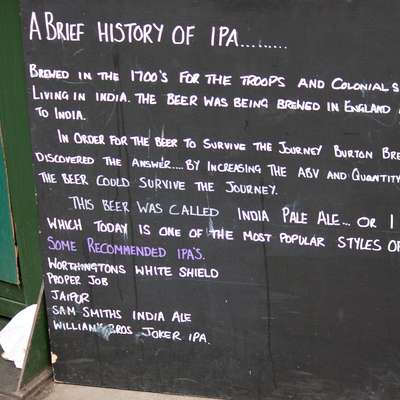 A BRIEF HISTORY OF IPA.........
BREWED IN THE 1700'S FOR THE TROOPS AND COLONIAL S
LIVING IN INDIA. THE BEER WAS BEING BREWED IN ENGLAND
TO INDIA.
IN ORDER FOR THE BEER TO SURVIVE THE JOURNEY BURTON BRE
DISCOVERED THE ANSWER.... BY INCREASING THE ABV AND QUANTITY
THE BEER COULD SURVIVE THE JOURNEY.
THIS BEER WAS CALLED INDIA PALE ALE... OR I
WHICH TODAY IS ONE OF THE MOST POPULAR STYLES OF
SOME RECOMMENDED IPA'S.
WORTHINGTONS WHITE SHIELD
PROPER JOB
JAIPUR
SAM SMITHS INDIA ALE
WILLIAMS BROS JOKER IPA.